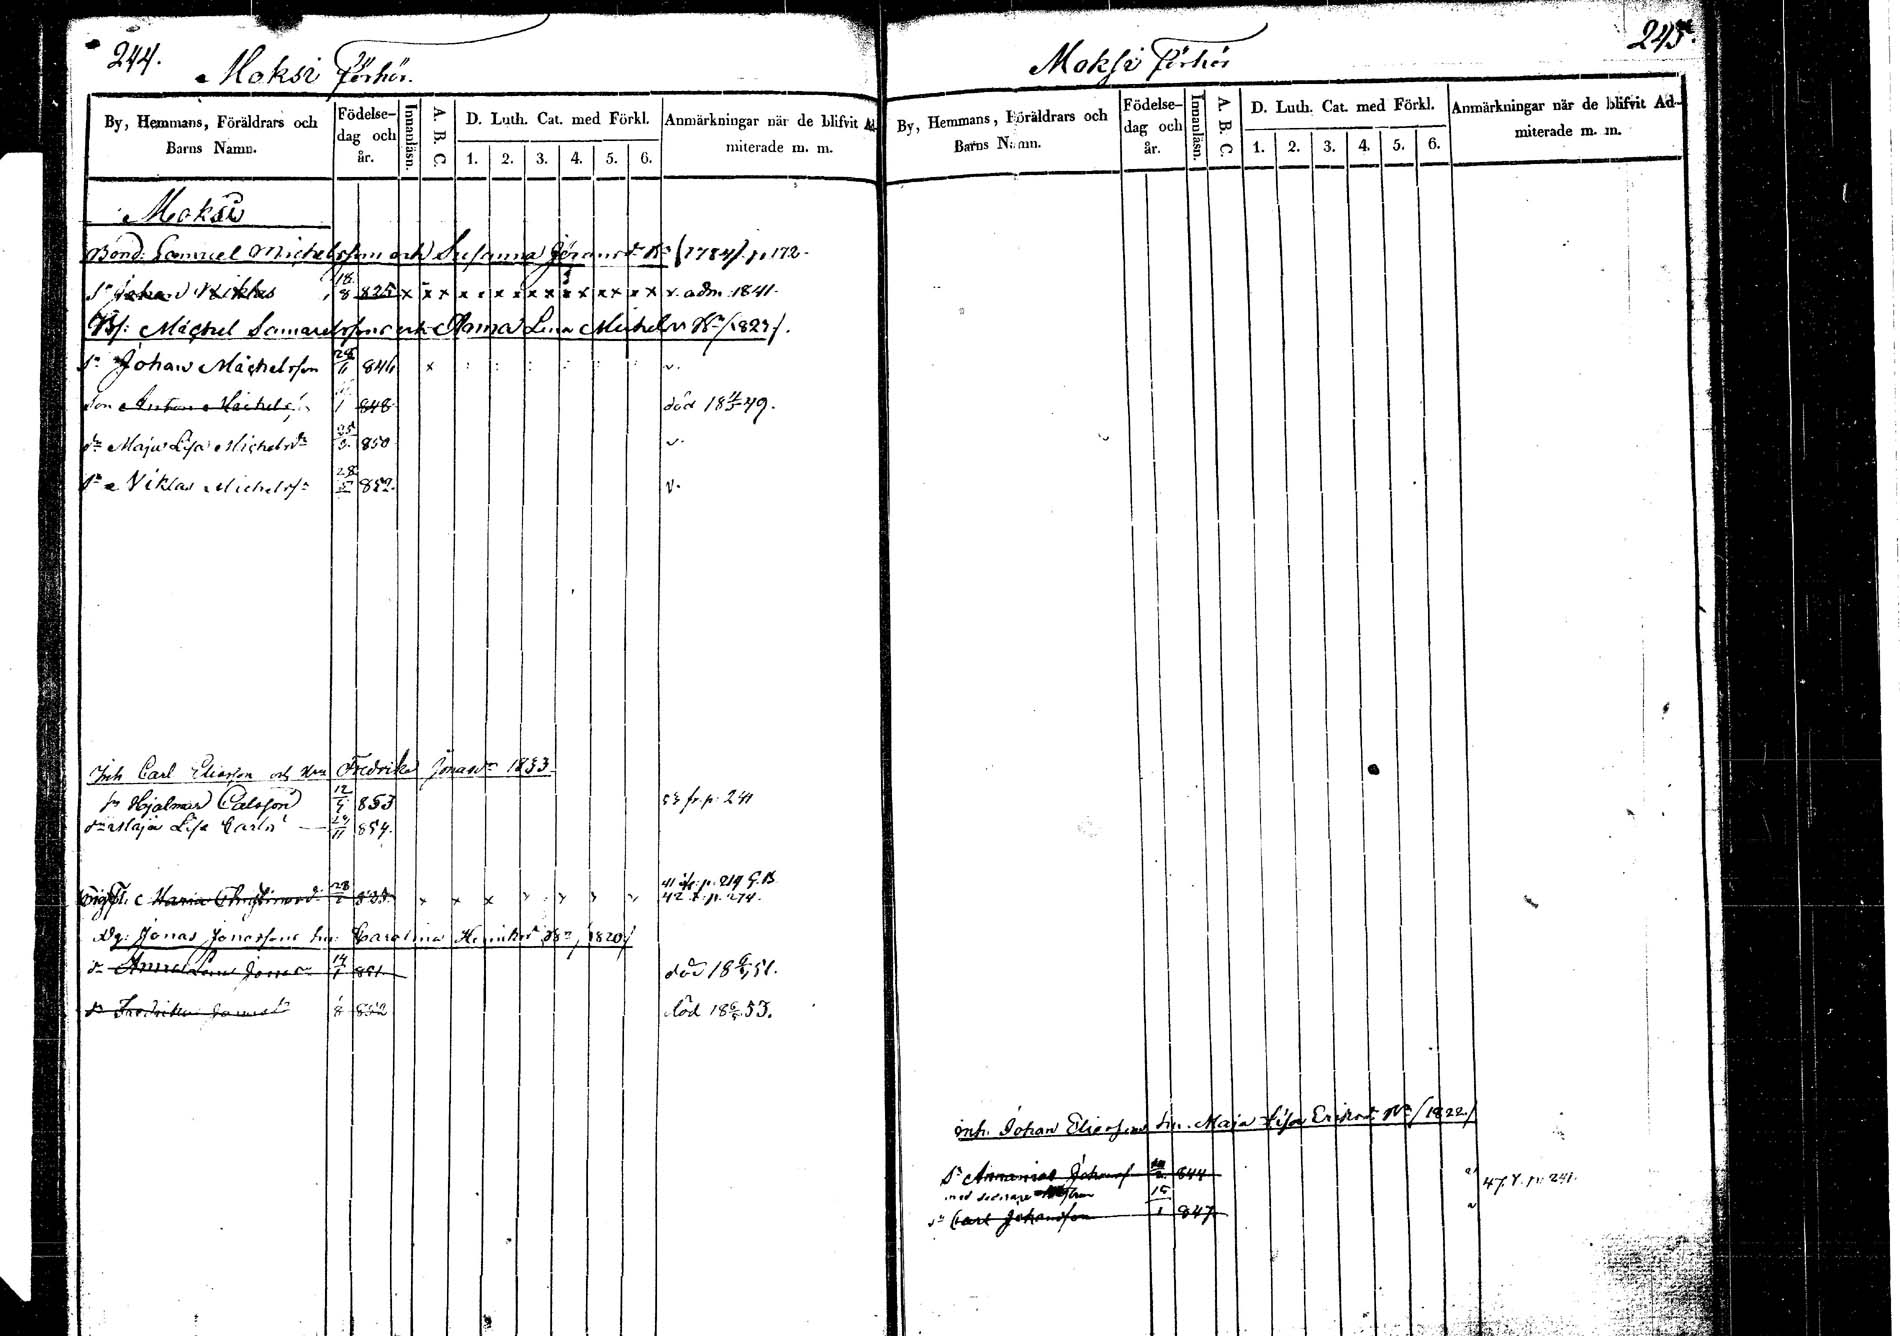 244.
Moksi Förhör.
By, Hemmans, Föräldrars och Barns Namn.
Födelse-dag och år.
Innanläsn.
A. B. C.
D. Luth. Cat. med Förkl.
1. 2. 3. 4. 5. 6.
Anmärkningar när de blifvit Ad-
miterade m. m.
Moksi
Bond. Samuel Michelsson och Susanna Jörans dr (1784) p. 172.
Sn Johan Niklas 18/8 825 x x x x x x x x x x x x x x v. adm. 1841.
Michel Samuelssons och Anna Lena Michels (1823).
Sn Johan Michelsson 846 x v.
Son Anton Michels 1 848 död 49.
dr Maja Lisa Michelsdr 25 850 v.
Sn Niklas Michelss 28 852. v.
Inh Carl Eliasson och Fredrika Jonasdr 1833
Sn Hjalmar Calsson 12 853 53 fr. p. 241
dr Maja Lisa Carls 11 854.
Maria 28 835 x x x 41 p. 219
42 p. 274.
Jonas Jonassons Carolina Henriksdr (1820)
dr Anna Lena Jonas 14 851 död 18 51.
dr Fredrika Jonasdr 8 852 död 18 53.
245.
Moksi Förhör
By, Hemmans, Föräldrars och Barns Namn.
Födelse-dag och år.
Innanläsn.
A. B. C.
D. Luth. Cat. med Förkl.
1. 2. 3. 4. 5. 6.
Anmärkningar när de blifvit Ad-
miterade m. m.
inh. Johan Eliassons Maja Lisa Eriksdr (1822)
Sn Ananias Johanss 844 47. p. 241.
med
Sn Carl Johansson 15/1 847